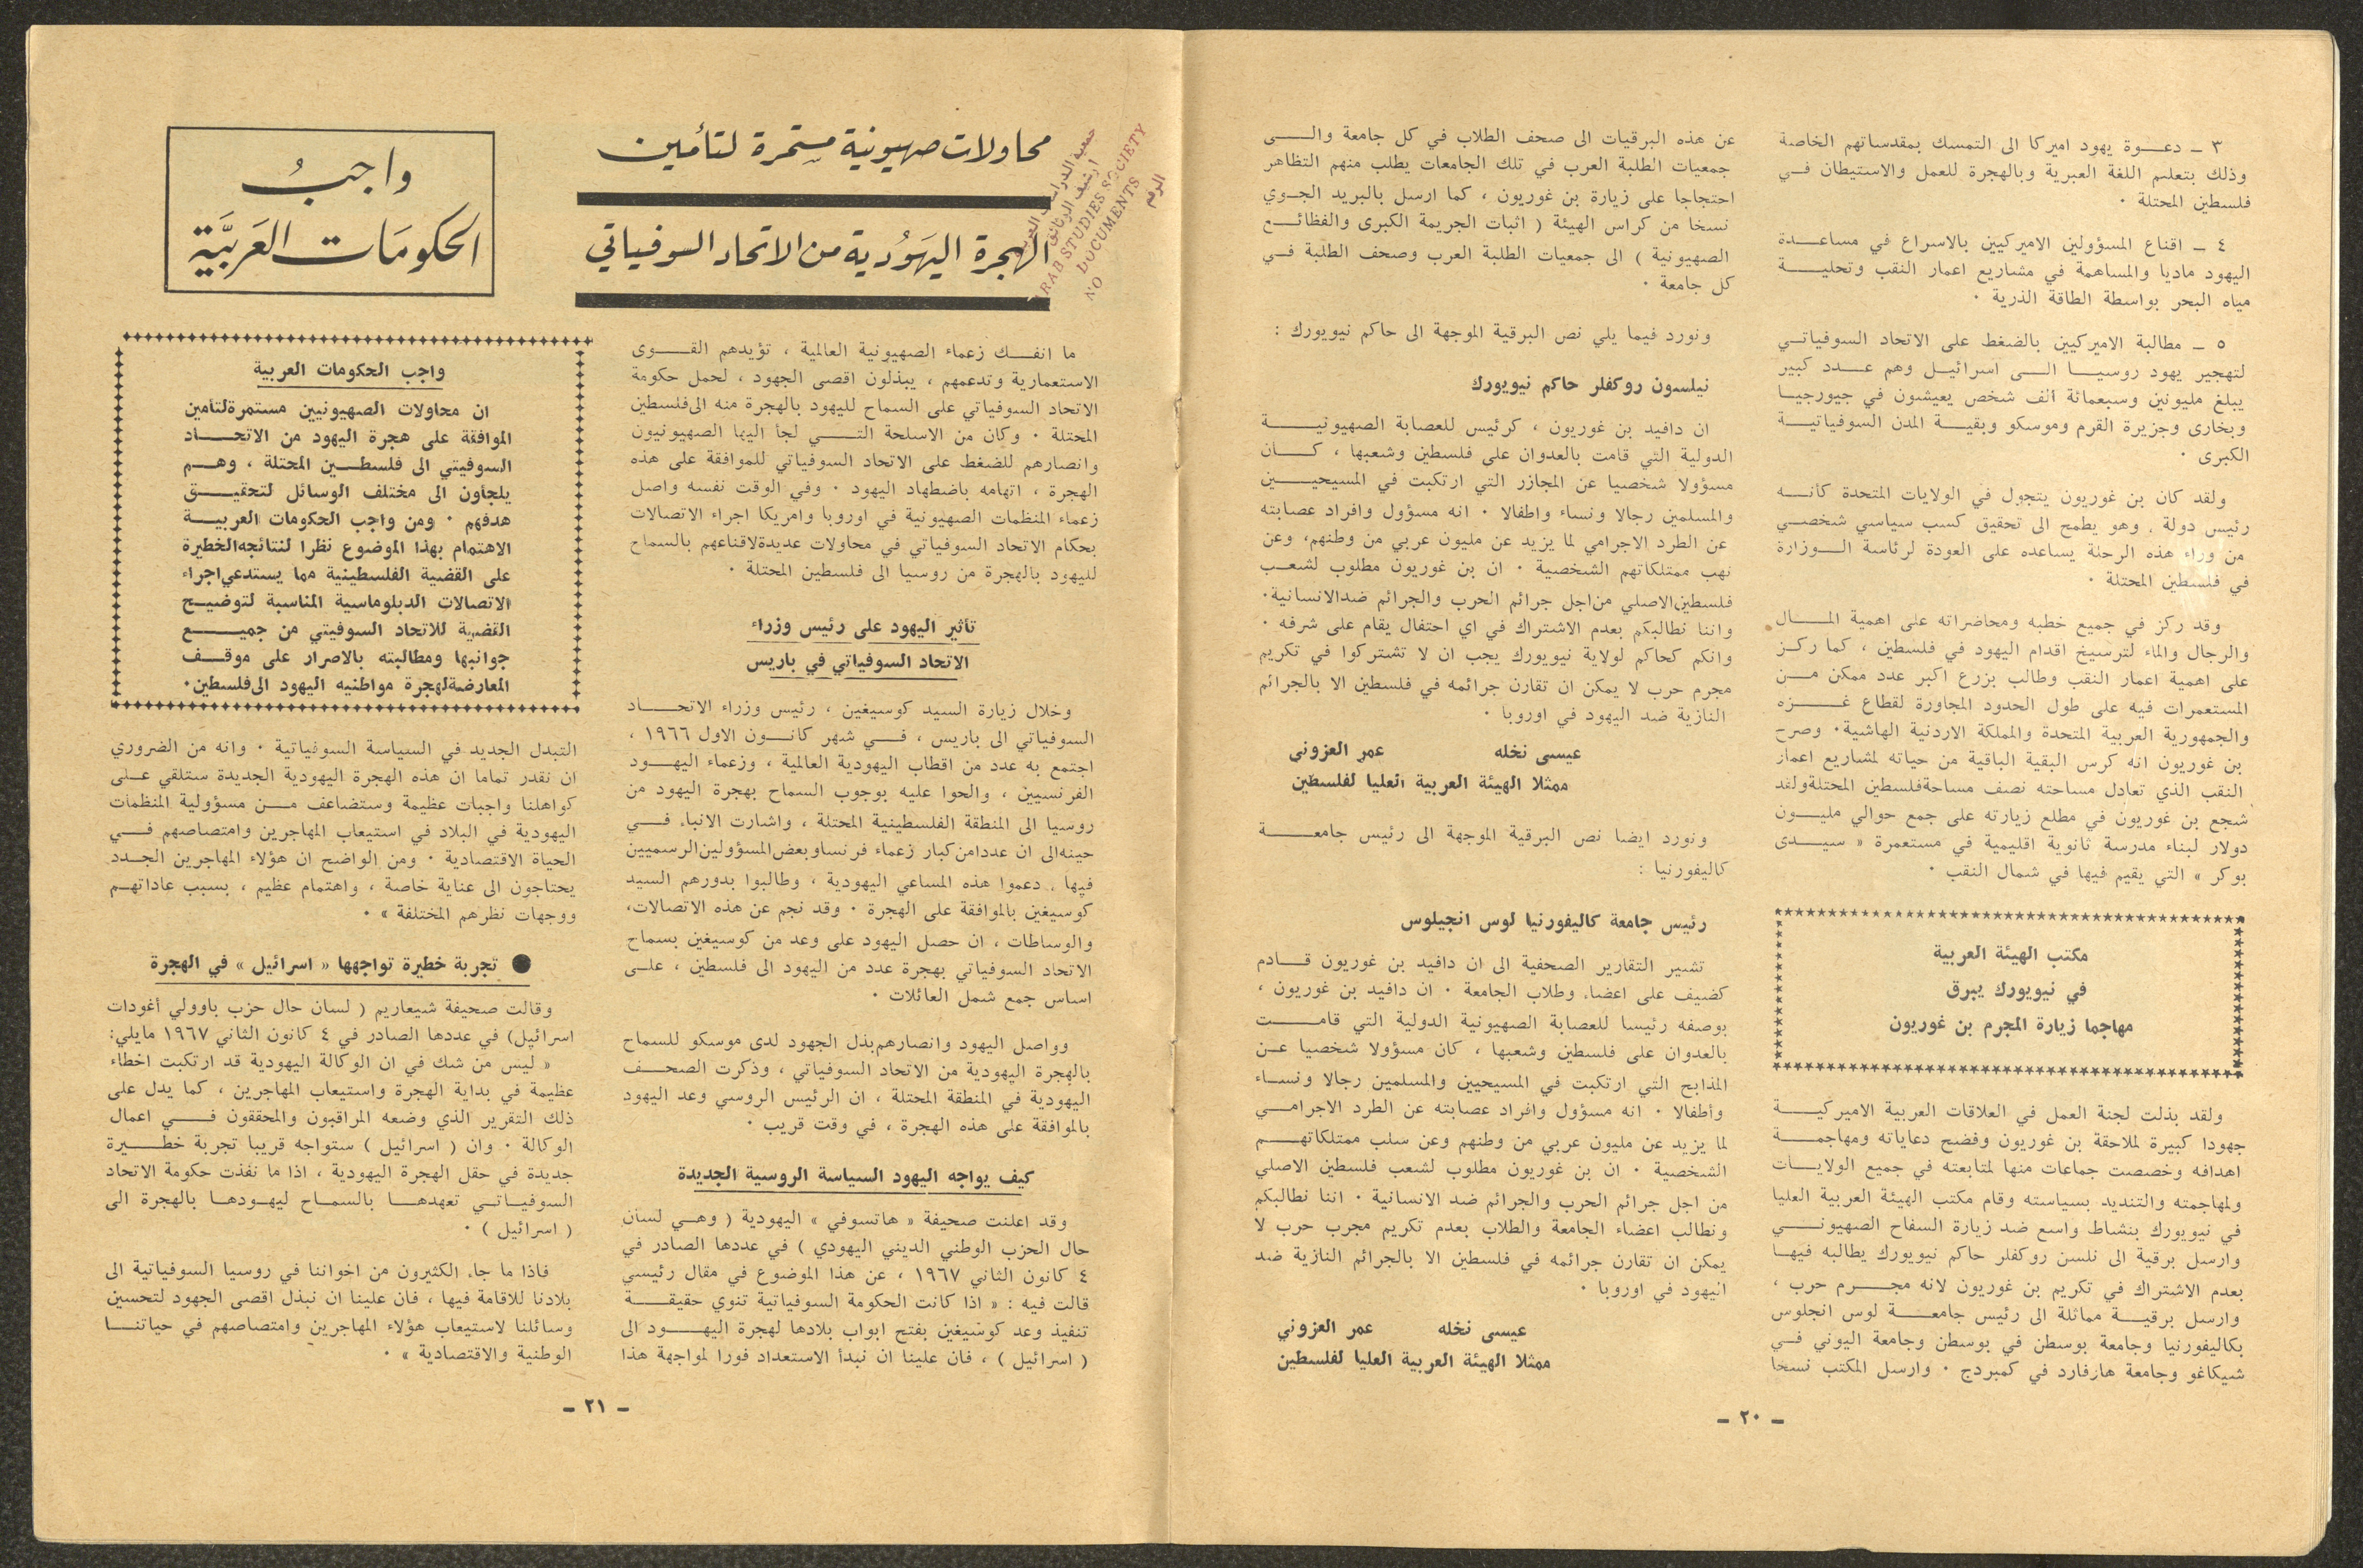 ٣ ـ دعوة يهود اميركا الى التمسك بمقدساتهم الخاصة
وذلك بتعليم اللغة العبرية وبالهجرة للعمل والاستيطان في
فلسطين المحتلة ٠
٤ ـ اقناع المسؤولين الاميركيين بالاسراع في مساعدة
اليهود ماديا والمساهمة في مشاريع اعمار النقب وتحلية
مياه البحر بواسطة الطاقة الذرية ٠
٥ ـ مطالبة الاميركيين بالضغط على الاتحاد السوفياتي
لتهجير يهود روسيا الى اسرائيل وهم عدد كبير
يبلغ مليونين وسبعمائة الف شخص يعيشون في جيورجيا
وبخارى وجزيرة القرم وموسكو وبقية المدن السوفياتية
الكبرى ٠
ولقد كان بن غوريون يتجول في الولايات المتحدة كانه
رئيس دولة ، وهو يطمح الى تحقيق كسب سياسي شخصي
من وراء هذه الرحلة يساعده على العودة لرئاسة الوزارة
في فلسطين المحتلة ٠
وقد ركز في جميع خطبه ومحاضراته على اهمية المال
والرجال والماء لترسيخ اقدام اليهود في فلسطين ، كما ركز
على اهمية اعمار النقب وطالب بزرع اكبر عدد ممكن من
المستعمرات فيه على طول الحدود المجاورة لقطاع غزه
والجمهورية العربية المتحدة والمملكة الاردنية الهاشية٠ وصرح
بن غوريون انه كرس البقية الباقية من حياته لمشاريع اعمار
النقب الذي تعادل مساحته نصف مساحة فلسطين المحتلة ولقد
شجع بن غوريون في مطلع زيارته على جمع حوالي مليون
دولار لبناء مدرسة ثانوية اقليمية في مستعمرة « سيدى
بوكر » التي يقيم فيها في شمال النقب ٠
مكتب الهيئة العربية
في نيويورك يبرق
مهاجما زيارة المجرم بن غوريون
ولقد بذلت لجنة العمل في العلاقات العربية الاميركية
جهودا كبيرة لملاحقة بن غوريون وفضح دعاياته ومهاجمة
اهدافه وخصصت جماعات منها لمتابعته في جميع الولايات
ولمهاجمته والتنديد بسياسته وقام مكتب الهيئة العربية العليا
في نيويورك بنشاط واسع ضد زيارة السفاح الصهيوني
وارسل برقية الى نلسن روكفلر حاكم نيويورك يطالبه فيها
بعدم الاشتراك في تكريم بن غوريون لانه مجرم حرب ،
وارسل برقية مماثلة الى رئيس جامعة لوس انجلوس
بكاليفورنيا وجامعة بوسطن في بوسطن وجامعة اليوني في
شيكاغو وجامعة هارفارد في كمبردج ٠ وارسل المكتب نسخا
عن هذه البرقيات الى صحف الطلاب في كل جامعة والى
جمعيات الطلبة العرب في تلك الجامعات يطلب منهم التظاهر
احتجاجا على زيارة بن غوريون ، كما ارسل بالبريد الجوي
نسخا من كراس الهيئة ( اثبات الجريمة الكبرى والفظائع
الصهيونية ) الى جمعيات الطلبة العرب وصحف الطلبة في
كل جامعة ٠
ونورد فيما يلي نص البرقية الموجهة الى حاكم نيويورك :
نيلسون روكفلر حاكم نيويورك
ان دافيد بن غوريون ، كرئيس للعصابة الصهيونية
الدولية التي قامت بالعدوان على فلسطين وشعبها ، كان
مسؤولا شخصيا عن المجازر التي ارتكبت في المسيحيين
والمسلمين رجالا ونساء واطفالا ٠ انه مسؤول وافراد عصابته
عن الطرد الاجرامي لما يزيد عن مليون عربي من وطنهم، وعن
نهب ممتلكاتهم الشخصية ٠ ان بن غوريون مطلوب لشعب
فلسطين الاصلي من اجل جرائم الحرب والجرائم ضد الانسانية٠
واننا نطالبكم بعدم الاشتراك في اي احتفال يقام على شرفه ٠
وانكم كحاكم لولاية نيويورك يجب ان لا تشتركوا في تكريم
مجرم حرب لا يمكن ان تقارن جرائمه في فلسطين الا بالجرائم
النازية ضد اليهود في اوروبا ٠
عيسى نخله عمر العزوني
ممثلا الهيئة العربية العليا لفلسطين
ونورد ايضا نص البرقية الموجهة الى رئيس جامعة
كاليفورنيا :
رئيس جامعة كاليفورنيا لوس انجيلوس
تشير التقارير الصحفية الى ان دافيد بن غوريون قادم
كضيف على اعضاء وطلاب الجامعة ٠ ان دافيد بن غوريون ،
بوصفه رئيسا للعصابة الصهيونية الدولية التي قامت
بالعدوان على فلسطين وشعبها ، كان مسؤولا شخصيا عن
المذابح التي ارتكبت في المسيحيين والمسلمين رجالا ونساء
وأطفالا ٠ انه مسؤول وافراد عصابته عن الطرد الاجرامي
لما يزيد عن مليون عربي من وطنهم وعن سلب ممتلكاتهم
الشخصية ٠ ان بن غوريون مطلوب لشعب فلسطين الاصلي
من اجل جرائم الحرب والجرائم ضد الانسانية ٠ اننا نطالبكم
ونطالب اعضاء الجامعة والطلاب بعدم تكريم مجرب حرب لا
يمكن ان تقارن جرائمه في فلسطين الا بالجرائم النازية ضد
اليهود في اوروبا ٠
عيسى نخله عمر العزوني
ممثلا الهيئة العربية العليا لفلسطين
ـ ٢٠ ـ
محاولات صهيونية مستمرة لتأمين
الهجرة اليهودية من الاتحاد السوفياتي
واجب
الحكومات العربية
جمعية الدراسات العربية
ارشيف الوثائق
ARAB STUDIES SOCIETY
DOCUMENTS
NO الرقم
ما انفك زعماء الصهيونية العالمية ، تؤيدهم القوى
الاستعمارية وتدعمهم ، يبذلون اقصى الجهود ، لحمل حكومة
الاتحاد السوفياتي على السماح لليهود بالهجرة منه الى فلسطين
المحتلة ٠ وكان من الاسلحة التي لجأ اليها الصهيونيون
وانصارهم للضغط على الاتحاد السوفياتي للموافقة على هذه
الهجرة ، اتهامه باضطهاد اليهود ٠ وفي الوقت نفسه واصل
زعماء المنظمات الصهيونية في اوروبا وامريكا اجراء الاتصالات
بحكام الاتحاد السوفياتي في محاولات عديدة لاقناعهم بالسماح
لليهود بالهجرة من روسيا الى فلسطين المحتلة ٠
تأثير اليهود على رئيس وزراء
الاتحاد السوفياتي في باريس
وخلال زيارة السيد كوسيغين ، رئيس وزراء الاتحاد
السوفياتي الى باريس ، في شهر كانون الاول ١٩٦٦ ،
اجتمع به عدد من اقطاب اليهودية العالمية ، وزعماء اليهود
الفرنسيين ، والحوا عليه بوجوب السماح بهجرة اليهود من
روسيا الى المنطقة الفلسطينية المحتلة ، واشارت الانباء في
حينه الى ان عددا من كبار زعماء فرنسا وبعض المسؤولين الرسميين
فيها ، دعموا هذه المساعي اليهودية ، وطالبوا بدورهم السيد
كوسيغين بالموافقة على الهجرة ٠ وقد نجم عن هذه الاتصالات،
والوساطات ، ان حصل اليهود على وعد من كوسيغين بسماح
الاتحاد السوفياتي بهجرة عدد من اليهود الى فلسطين ، على
اساس جمع شمل العائلات ٠
وواصل اليهود وانصارهم بذل الجهود لدى موسكو للسماح
بالهجرة اليهودية من الاتحاد السوفياتي ، وذكرت الصحف
اليهودية في المنطقة المحتلة ، ان الرئيس الروسي وعد اليهود
بالموافقة على هذه الهجرة ، في وقت قريب ٠
كيف يواجه اليهود السياسة الروسية الجديدة
وقد اعلنت صحيفة « هاتسوفي » اليهودية ( وهي لسان
حال الحزب الوطني الديني اليهودي ) في عددها الصادر في
٤ كانون الثاني ١٩٦٧ ، عن هذا الموضوع في مقال رئيسي
قالت فيه : « اذا كانت الحكومة السوفياتية تنوي حقيقة
تنفيذ وعد كوسيغين بفتح ابواب بلادها لهجرة اليهود الى
( اسرائيل ) ، فان علينا ان نبدأ الاستعداد فورا لمواجهة هذا
واجب الحكومات العربية
ان محاولات الصهيونيين مستمرة لتأمين
الموافقة على هجرة اليهود من الاتحاد
السوفيتي الى فلسطين المحتلة ، وهم
يلجأون الى مختلف الوسائل لتحقيق
هدفهم ٠ ومن واجب الحكومات العربية
الاهتمام بهذا الموضوع نظرا لنتائجه الخطيرة
على القضية الفلسطينية مما يستدعي اجراء
الاتصالات الدبلوماسية المناسبة لتوضيح
القضية للاتحاد السوفيتي من جميع
جوانبها ومطالبته بالاصرار على موقف
المعارضة لهجرة مواطنيه اليهود الى فلسطين٠
التبدل الجديد في السياسة السوفياتية ٠ وانه من الضروري
ان نقدر تماما ان هذه الهجرة اليهودية الجديدة ستلقي على
كواهلنا واجبات عظيمة وستضاعف من مسؤولية المنظمات
اليهودية في البلاد في استيعاب المهاجرين وامتصاصهم في
الحياة الاقتصادية ٠ ومن الواضح ان هؤلاء المهاجرين الجدد
يحتاجون الى عناية خاصة ، واهتمام عظيم ، بسبب عاداتهم
ووجهات نظرهم المختلفة » ٠
● تجربة خطيرة تواجهها « اسرائيل » في الهجرة
وقالت صحيفة شيعاريم ( لسان حال حزب باوولي أغودات
اسرائيل) في عددها الصادر في ٤ كانون الثاني ١٩٦٧ مايلي:
« ليس من شك في ان الوكالة اليهودية قد ارتكبت اخطاء
عظيمة في بداية الهجرة واستيعاب المهاجرين ، كما يدل على
ذلك التقرير الذي وضعه المراقبون والمحققون في اعمال
الوكالة ٠ وان ( اسرائيل ) ستواجه قريبا تجربة خطيرة
جديدة في حقل الهجرة اليهودية ، اذا ما نفذت حكومة الاتحاد
السوفياتي تعهدها بالسماح ليهودها بالهجرة الى
( اسرائيل ) ٠
فاذا ما جاء الكثيرون من اخواننا في روسيا السوفياتية الى
بلادنا للاقامة فيها ، فان علينا ان نبذل اقصى الجهود لتحسين
وسائلنا لاستيعاب هؤلاء المهاجرين وامتصاصهم في حياتنا
الوطنية والاقتصادية » ٠
ـ ٢١ ـ